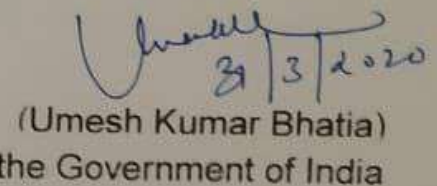 31/3/2020
(Umesh Kumar Bhatia)
the Government of India